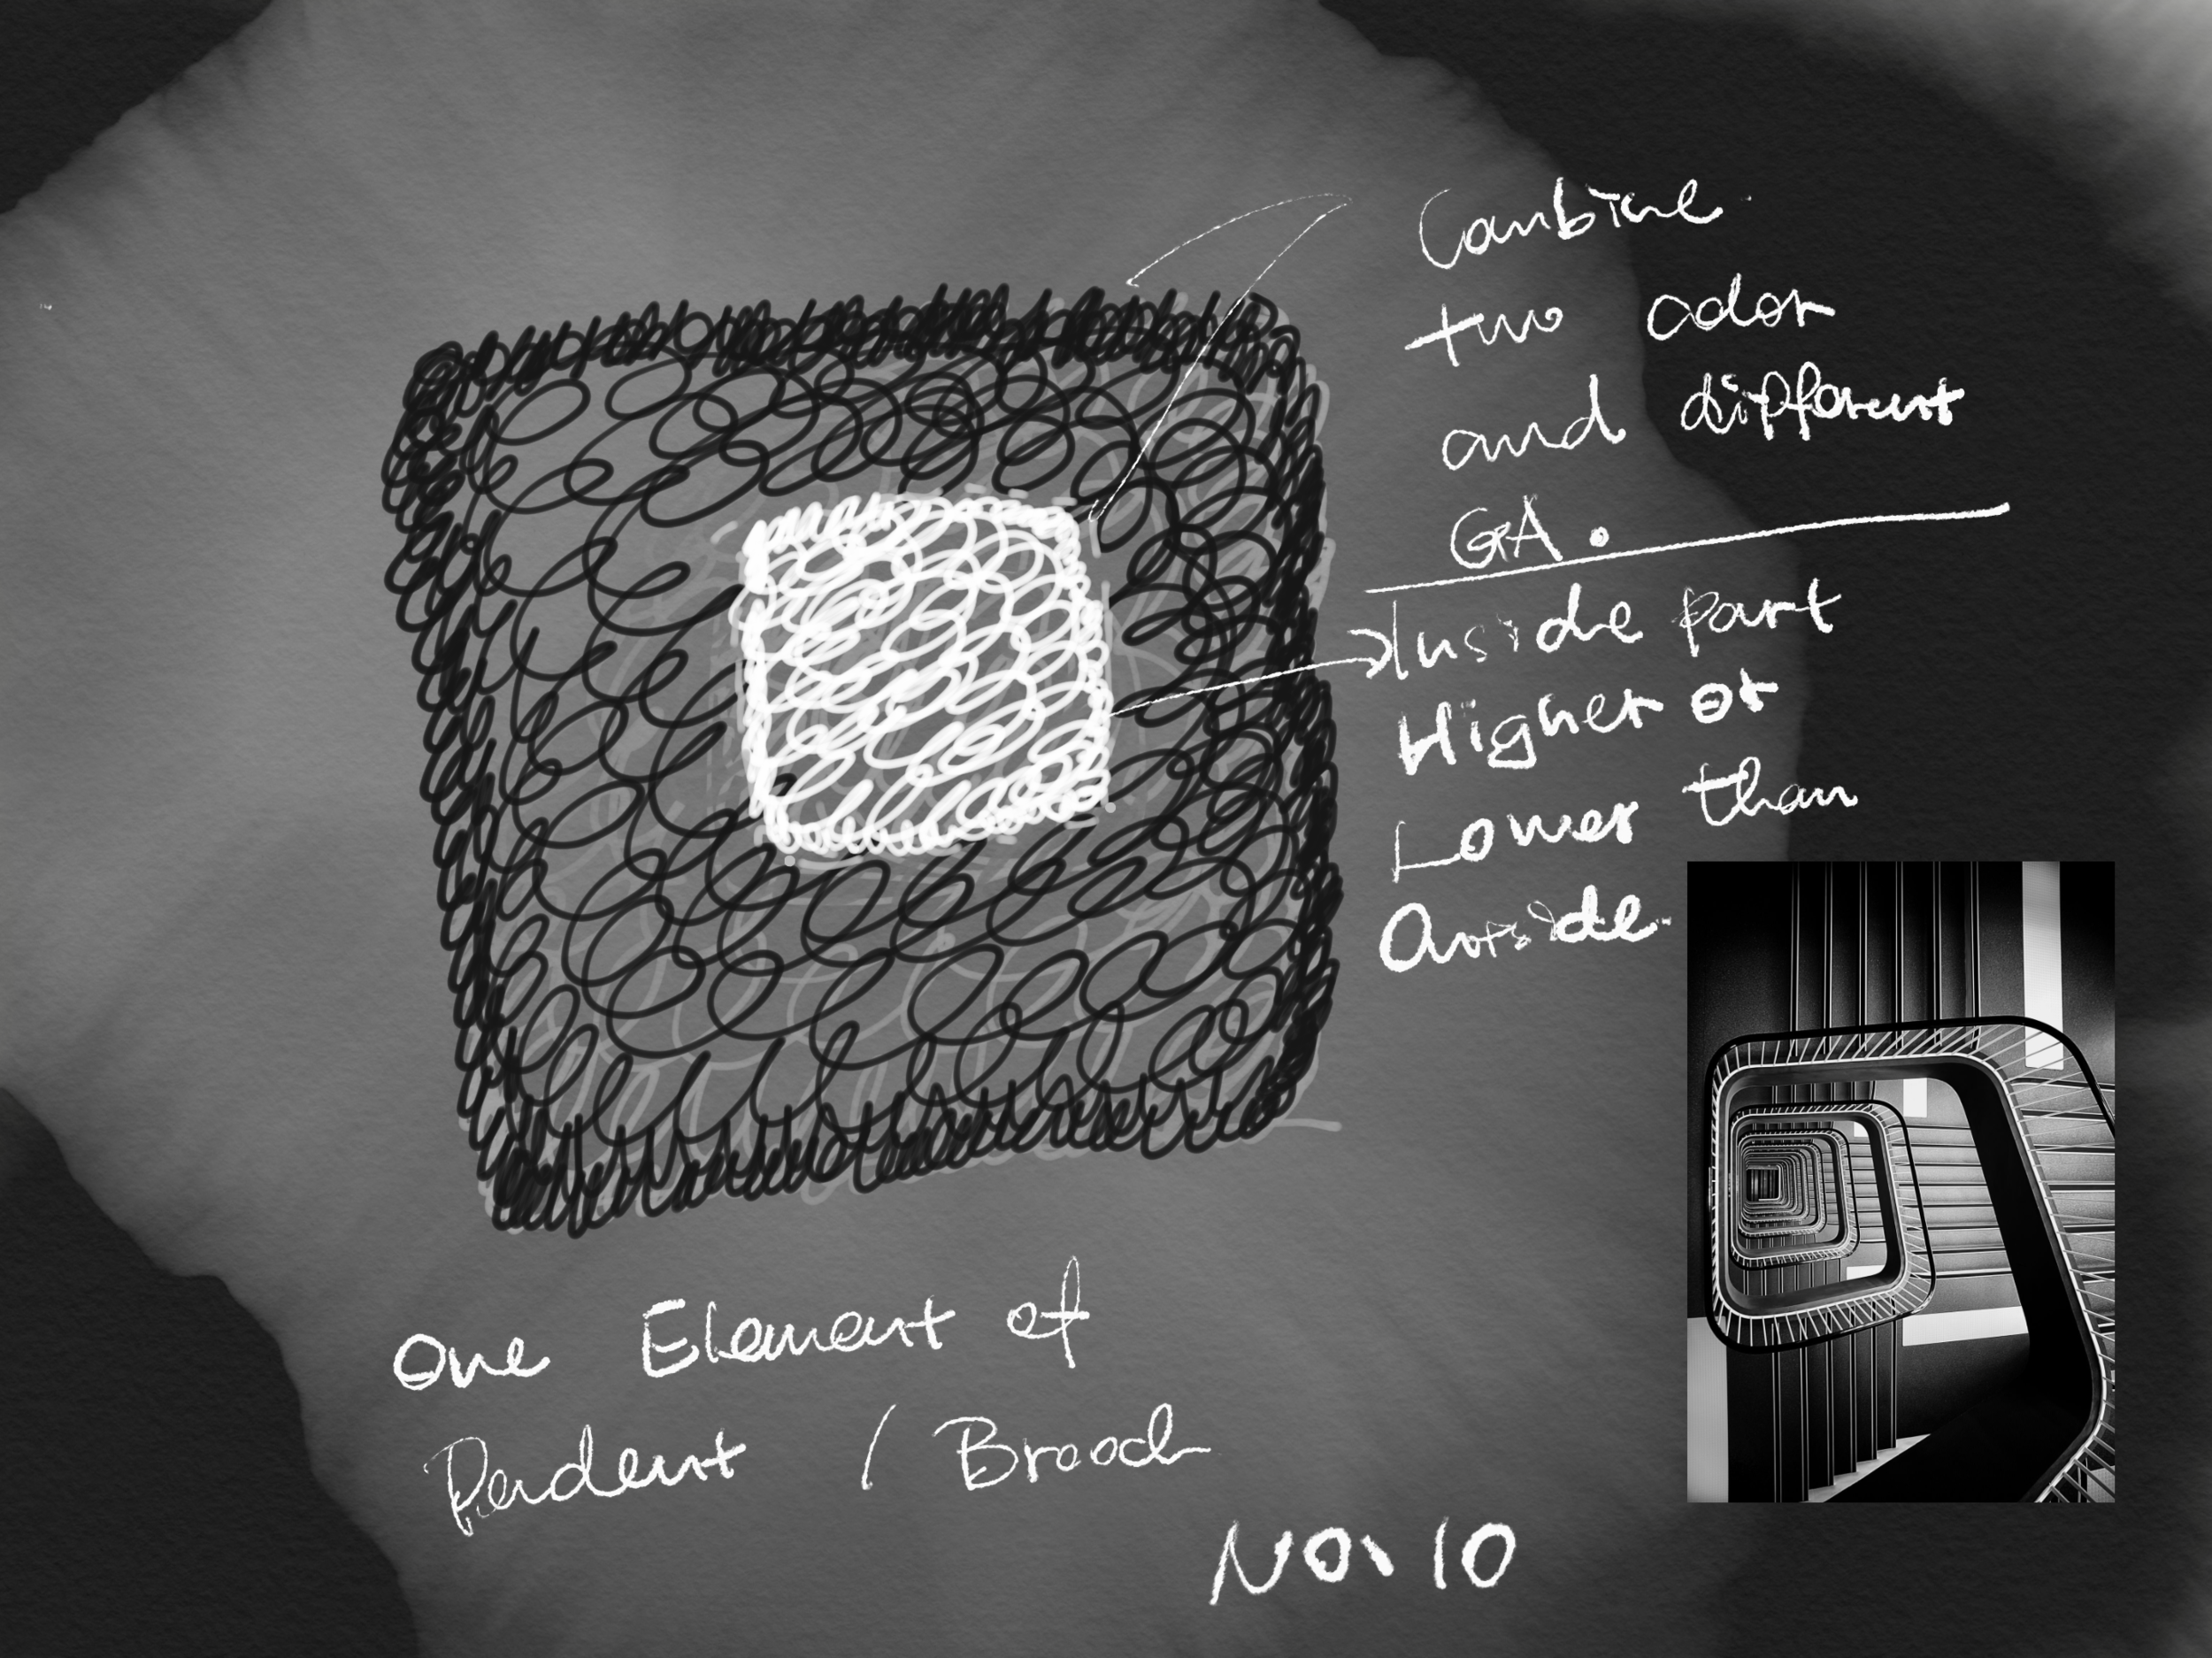 Combine
two color
and different
GA.
Inside part
Higher or
Lower than
Outside.
One Element of
Pendent / Brooch
NO. 10